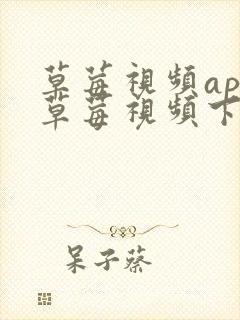 草莓視頻ap
草莓視頻下
呆子蔡